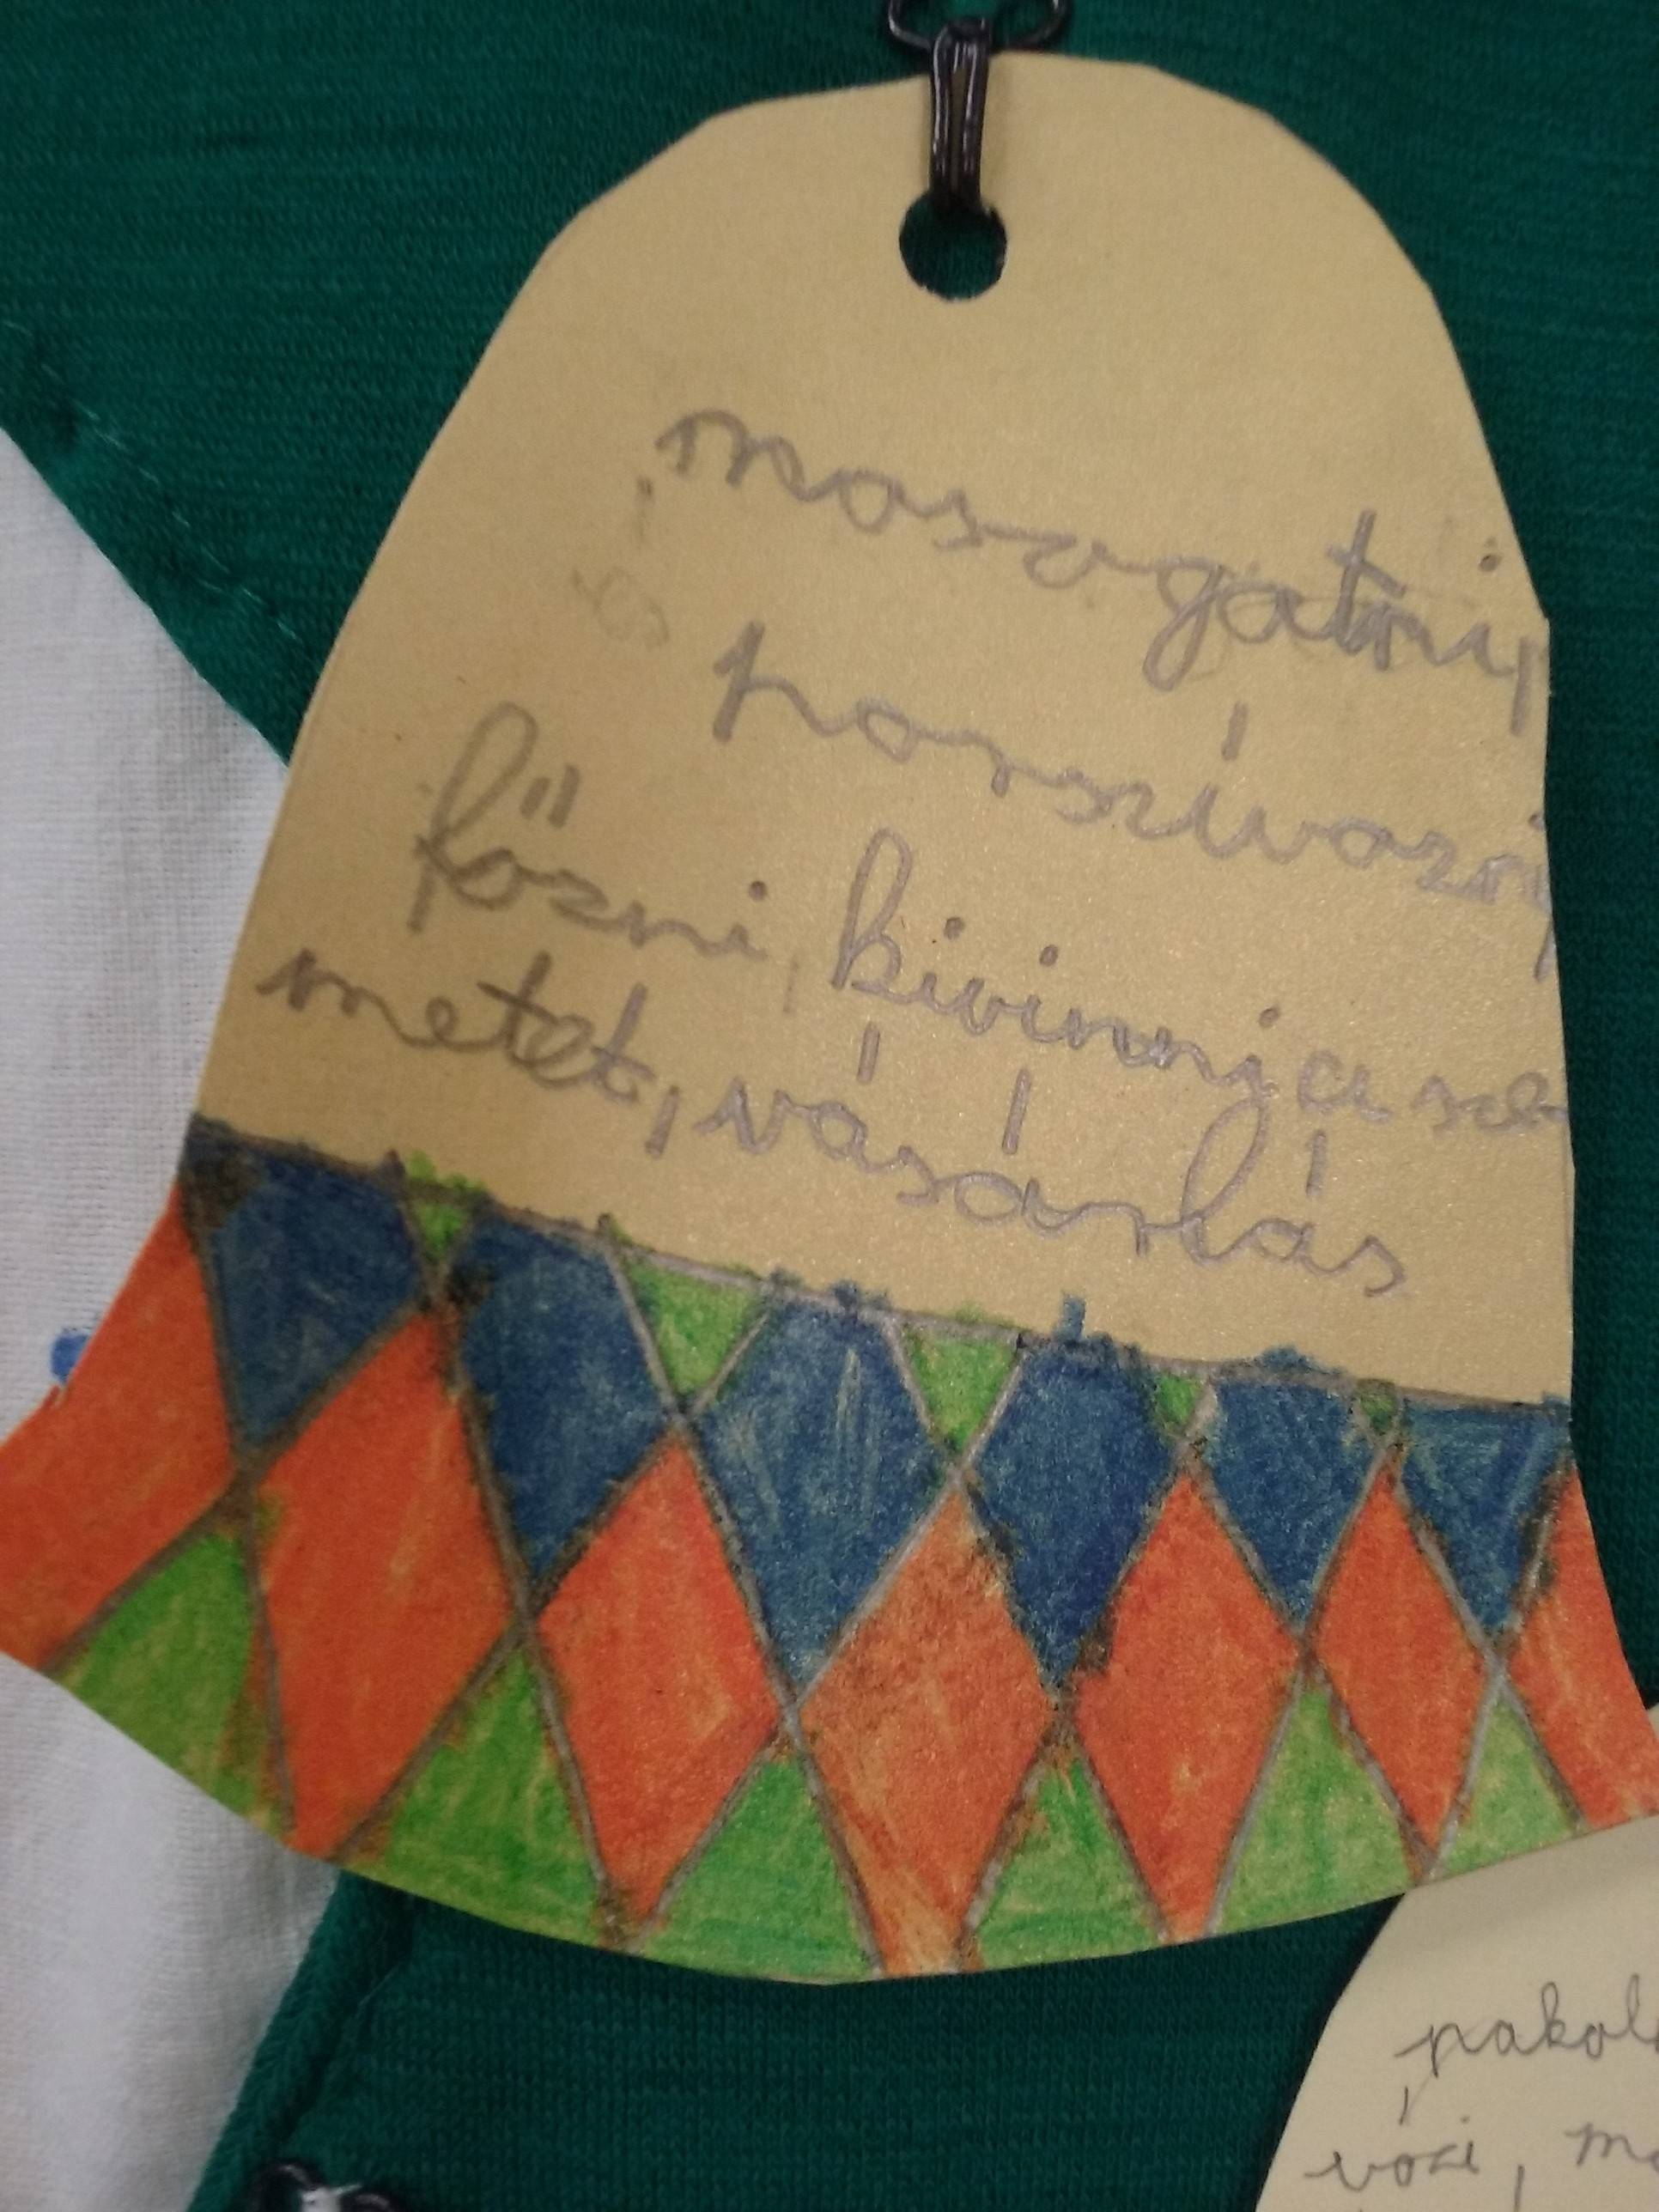 mosogatni,
porszívozni,
főzni, kivinni a sze-
metet, vásárlás